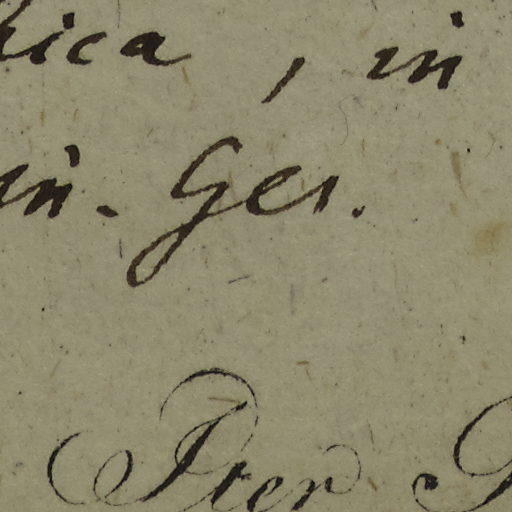 hica, in
in. Ger.
Iter